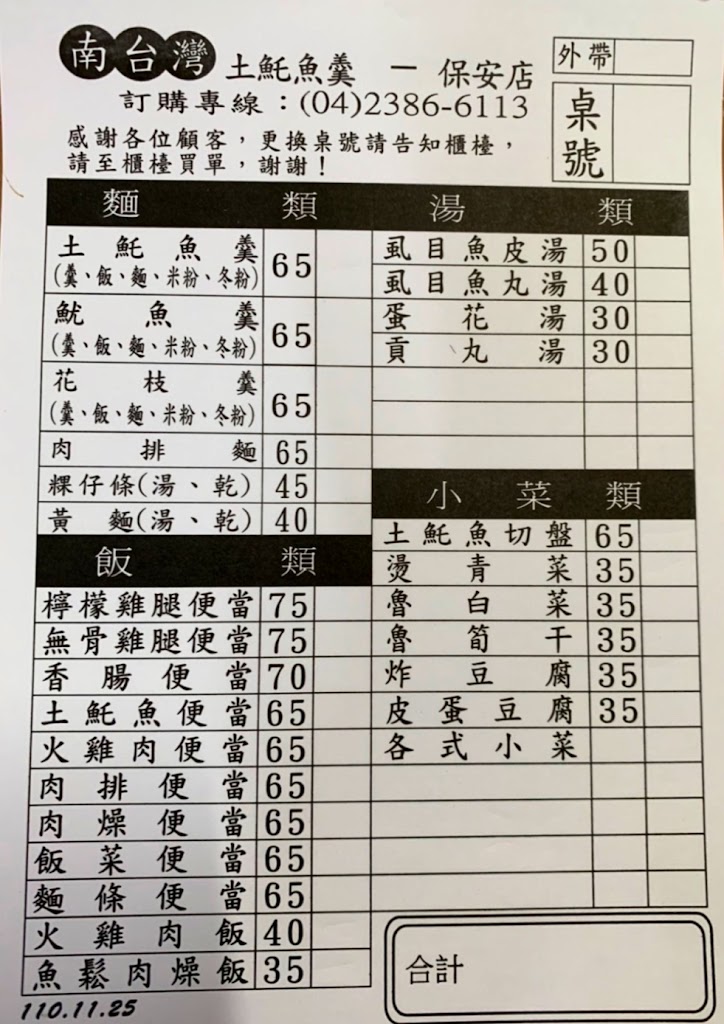 南台灣 土魠魚羹 － 保安店
外帶
訂購專線：(04)2386-6113
桌號
感謝各位顧客，更換桌號請告知櫃檯，
請至櫃檯買單，謝謝！
麵類
土魠魚羹 65
(羹、飯、麵、米粉、冬粉)
魷魚羹 65
(羹、飯、麵、米粉、冬粉)
花枝羹 65
(羹、飯、麵、米粉、冬粉)
肉排麵 65
粿仔條(湯、乾) 45
黃麵(湯、乾) 40
飯類
檸檬雞腿便當 75
無骨雞腿便當 75
香腸便當 70
土魠魚便當 65
火雞肉便當 65
肉排便當 65
肉燥便當 65
飯菜便當 65
麵條便當 65
火雞肉飯 40
魚鬆肉燥飯 35
110.11.25
湯類
虱目魚皮湯 50
虱目魚丸湯 40
蛋花湯 30
貢丸湯 30
小菜類
土魠魚切盤 65
燙青菜 35
魯白菜 35
魯筍干 35
炸豆腐 35
皮蛋豆腐 35
各式小菜
合計